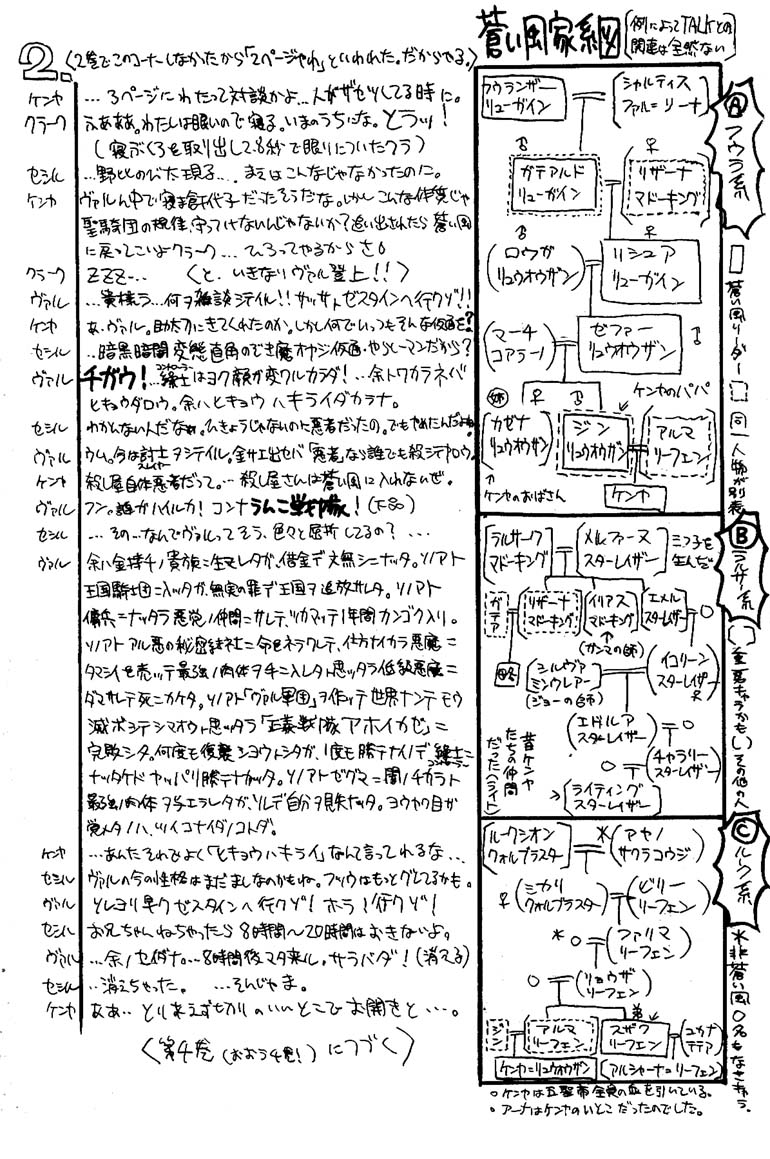 2.
〈2巻でこのコーナーしなかったから「2ページやれ」といわれた。だからやる。〉
ケンヤ …3ページにわたって対談かよ…人がザセツしてる時に。
クラーク ふあぁぁ。わたしは眠いので寝る。いまのうちにな。とうッ!
(寝ぶくろを取り出して2.8秒で眠りについたクラ)
セシル …野比のび太現る…まえはこんなじゃなかったのに。
ケンヤ
聖騎団の規律、守ってけないんじゃないか?追い出されたら蒼い風
に戻ってこいよクラーク…ひろってやるからさ。
クラーク ZZZ…〈と、いきなりヴァル登上!!〉
ヴァル …貴様ラ…何ヲ雑談シテイル!!サッサトゼスタインへ行クゾ!!
ケンヤ あ、ヴァル。助太刀にきてくれたのか。しかし何でいつもそんな仮面を?
セシル …暗黒暗闇変態直角のでき魔オヤジ仮面・やらしーマンだから?
ヴァル チガウ!…ハヨク顔が変ワルカラダ!…余トワカラネバ
ヒキョウダロウ。余ハヒキョウハキライダカラナ。
セシル わかんない人だなぁ。ひきょうじゃないのに悪者だったの。でもやめたんだよね?
ヴァル ウム。今は討士ヲシテイル。金サエ出セバ「悪者」なら誰でも殺シテヤロウ。
ケンヤ 殺し屋自体悪者だって。…殺し屋さんは蒼い風に入れないぜ。
ヴァル フン。誰がハイルカ!コンナうんこ戦隊!(下品)
セシル …その…なんでヴァルってそう、色々と屈折してるの?…
ヴァル 余ハ金持チノ貴族ニ生マレタガ、借金デ文無シニナッタ。ソノアト
王国騎士団ニ入ッタガ、無実の罪デ王国ヲ追放サレタ。ソノアト
傭兵ニナッタラ悪党ノ仲間ニサレテ、ツカマッテ1年間カンゴク入リ。
ソノアトアル悪の秘密結社ニ命ヲネラワレテ、仕方ナイカラ悪魔ニ
タマシイを売ッテ最強ノ肉体ヲ手ニ入レタト思ッタラ低級悪魔ニ
ダマサレテ死ニカケタ。ソノアト「ヴァル軍団」ヲ作ッテ世界ナンテモウ
滅ボシテシマオウト思ッタラ「正義戦隊アホイカゼ」ニ
完敗シタ。何度も復讐シヨウトシタガ、1度も勝テナイノデ
ナッタケドヤッパリ勝テナカッタ。ソノアトゼグマニ闇ノチカラト
最強ノ肉体ヲ与エラレタガ、ソレデ自分ヲ見失ナッタ。ヨウヤク目が
覚メタノハ、ツイコナイダノコトダ。
ケンヤ …あんたそれでよく「ヒキョウハキライ」なんて言ってれるな…
セシル ヴァルの今の性格はまだましなのかもね。フツウはもっとグレてるかも。
ヴァル ソレヨリ早クゼスタインへ行クゾ!ホラ!行クゾ!
セシル お兄ちゃんねちゃったら8時間〜20時間はおきないよ。
ヴァル …余ノセイダナ…8時間後マタ来ル。サラバダ!(消える)
セシル …消えちゃった。…そんじゃま。
ケンヤ ああ…とりあえずちかりのいいとこでお開きと…。
〈第4巻(おおう4巻!)につづく〉
蒼い風家系図
(例によってTALKとの
関連は全然ない)
Ⓐフウラ系
フウランザー
リューガイン
シャルティス
ファル=リーナ
ガテアルド
リューガイン
リザーナ
マドーキング
ロウガ
リュウオウザン
リシュア
リューガイン
マーチ
コアラーノ
ゼファー
リュウオウザン
姉
ケンヤのパパ
カゼナ
リュウオウザン
ジン
リュウオウザン
アルマ
リーフェン
ケンヤのおばさん
ケンヤ
蒼い風リーダー
同一人物が別表
Ⓑラルサー系
ラルサーク
マドーキング
メルファース
スターレイザー
ミつ子を
生んだ
ガテア
リザーナ
マドーキング
イリアス
マドーキング
エメル
スターレイザー
(ガンマの師)
略
シルヴァ
ミンウレアー
(ジョーの師)
イコリーン
スターレイザー
エドルア
スターレイザー
チャラリー
スターレイザー
ライティング
スターレイザー
昔ケンヤ
たちの仲間
だった(ライト)
重要キャラかも
( )その他の人
Ⓒルーク系
ルークシオン
クォルプラスター
*アヤノ
サクラコウジ
ミカリ
クォルプラスター
ビリー
リーフェン
*ファリマ
リーフェン
リョウザ
リーフェン
弟
ジン
アルマ
リーフェン
スザク
リーフェン
ユカナ
テテア
ケンヤ=リュウオウザン
(アルシャーナ=リーフェン)
*非蒼い風
○名もなききゃら。
○ケンヤは五聖帝全員の血を引いている。
○アーナはケンヤのいとこだったのでした。